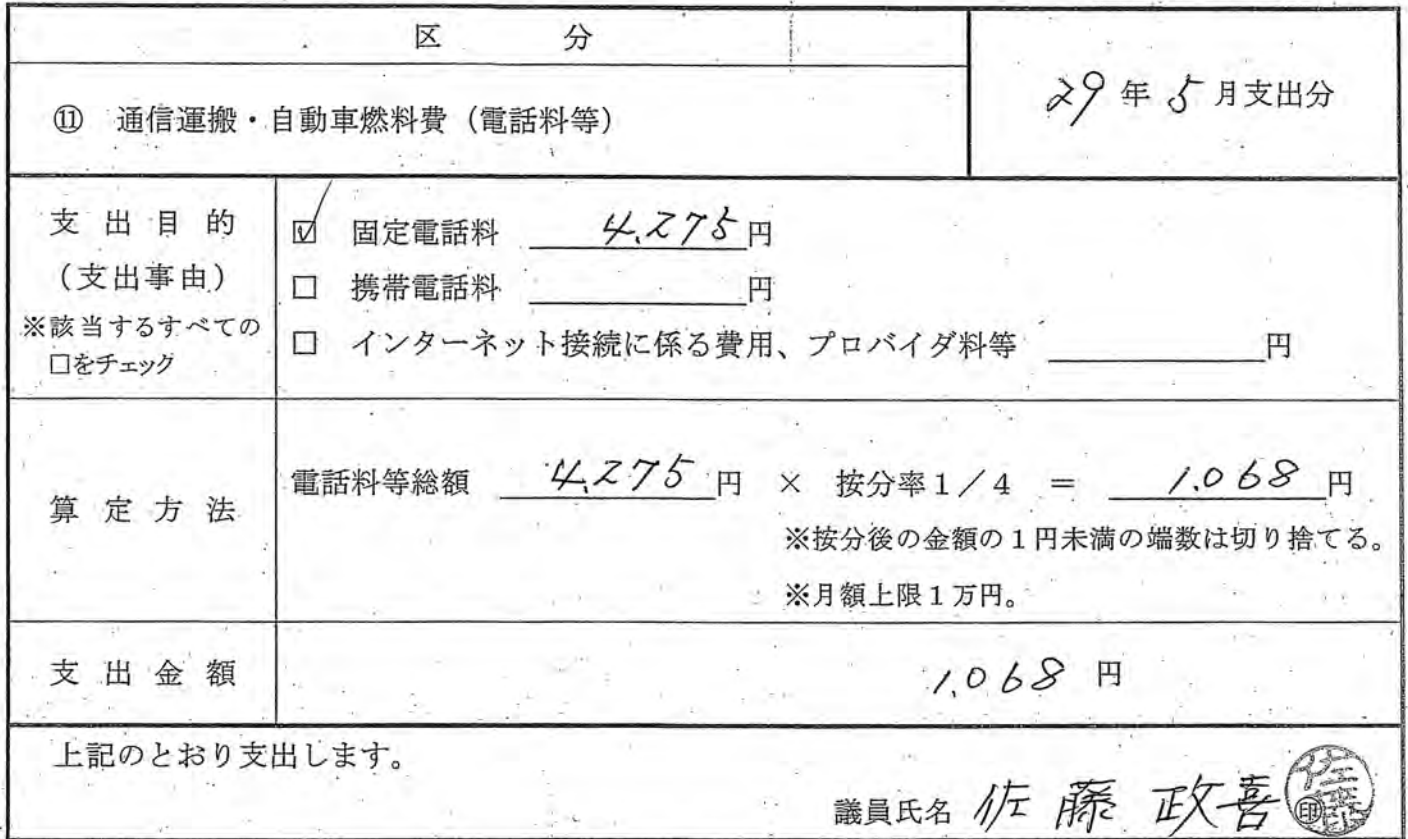 区　　分
29年5月支出分
⑪　通信運搬・自動車燃料費（電話料等）
支出目的
（支出事由）
※該当するすべての
□をチェック
☑　固定電話料　4,275円
□　携帯電話料　円
□　インターネット接続に係る費用、プロバイダ料等　円
算定方法
電話料等総額　4,275円　×　按分率1／4　＝　1,068円
※按分後の金額の1円未満の端数は切り捨てる。
※月額上限1万円。
支出金額
1,068円
上記のとおり支出します。
議員氏名　佐藤　政喜　印